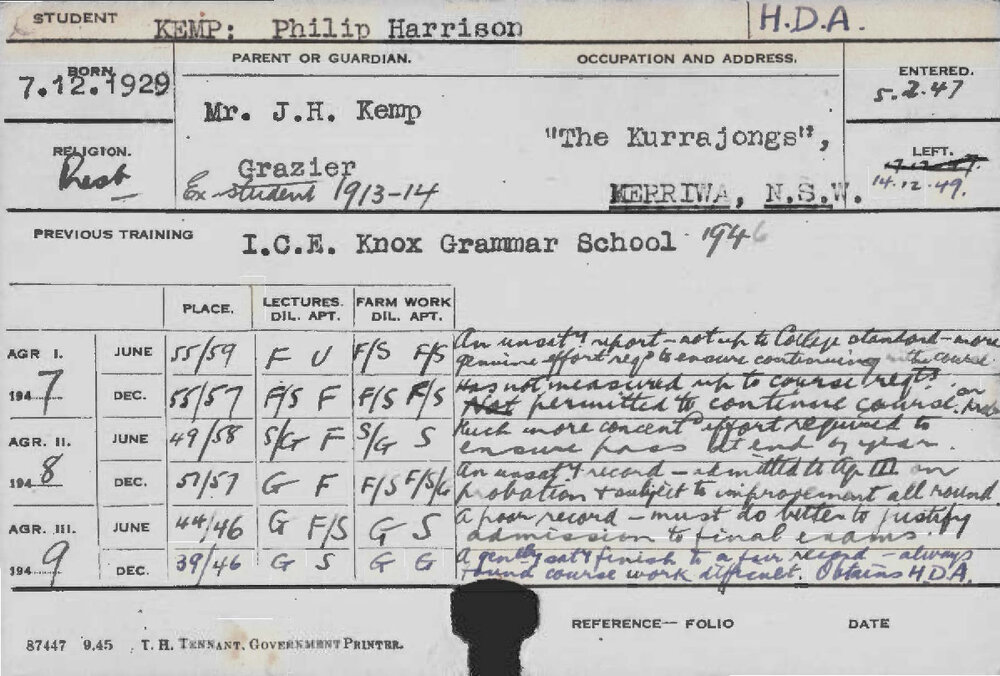 STUDENT KEMP: Philip Harrison H.D.A.
BORN. PARENT OR GUARDIAN. OCCUPATION AND ADDRESS. ENTERED.
7.12.1929 5.2.47
Mr. J.H. Kemp "The Kurrajongs",
RELIGION. Grazier LEFT.
Presb Ex-student 1913-14 MERRIWA, N.S.W. 14.12.49.
PREVIOUS TRAINING I.C.E. Knox Grammar School 1946
PLACE. LECTURES. FARM WORK
DIL. APT. DIL. APT.
AGR I. JUNE 55/59 F U F/S F/S An unsaty report - not up to College standard - more
genuine effort reqd to ensure continuing in the course.
1947 DEC. 55/57 F/S F F/S F/S Has not measured up to course reqts.
Not permitted to continue course on Prob
AGR. II. JUNE 49/58 S/G F S/G S Much more concentd effort required to
ensure pass at end of year.
1948 DEC. 57/57 G F F/S F/S/G An unsaty record - admitted to Agr III on
probation & subject to improvement all round
AGR. III. JUNE 44/46 G F/S G S A poor record - must do better to justify
admission to final exams.
1949 DEC. 39/46 G S G G A genlly saty finish to a fair record - always
found course work difficult. Obtains H.D.A.
REFERENCE— FOLIO DATE
87447 9.45 T. H. TENNANT, GOVERNMENT PRINTER.